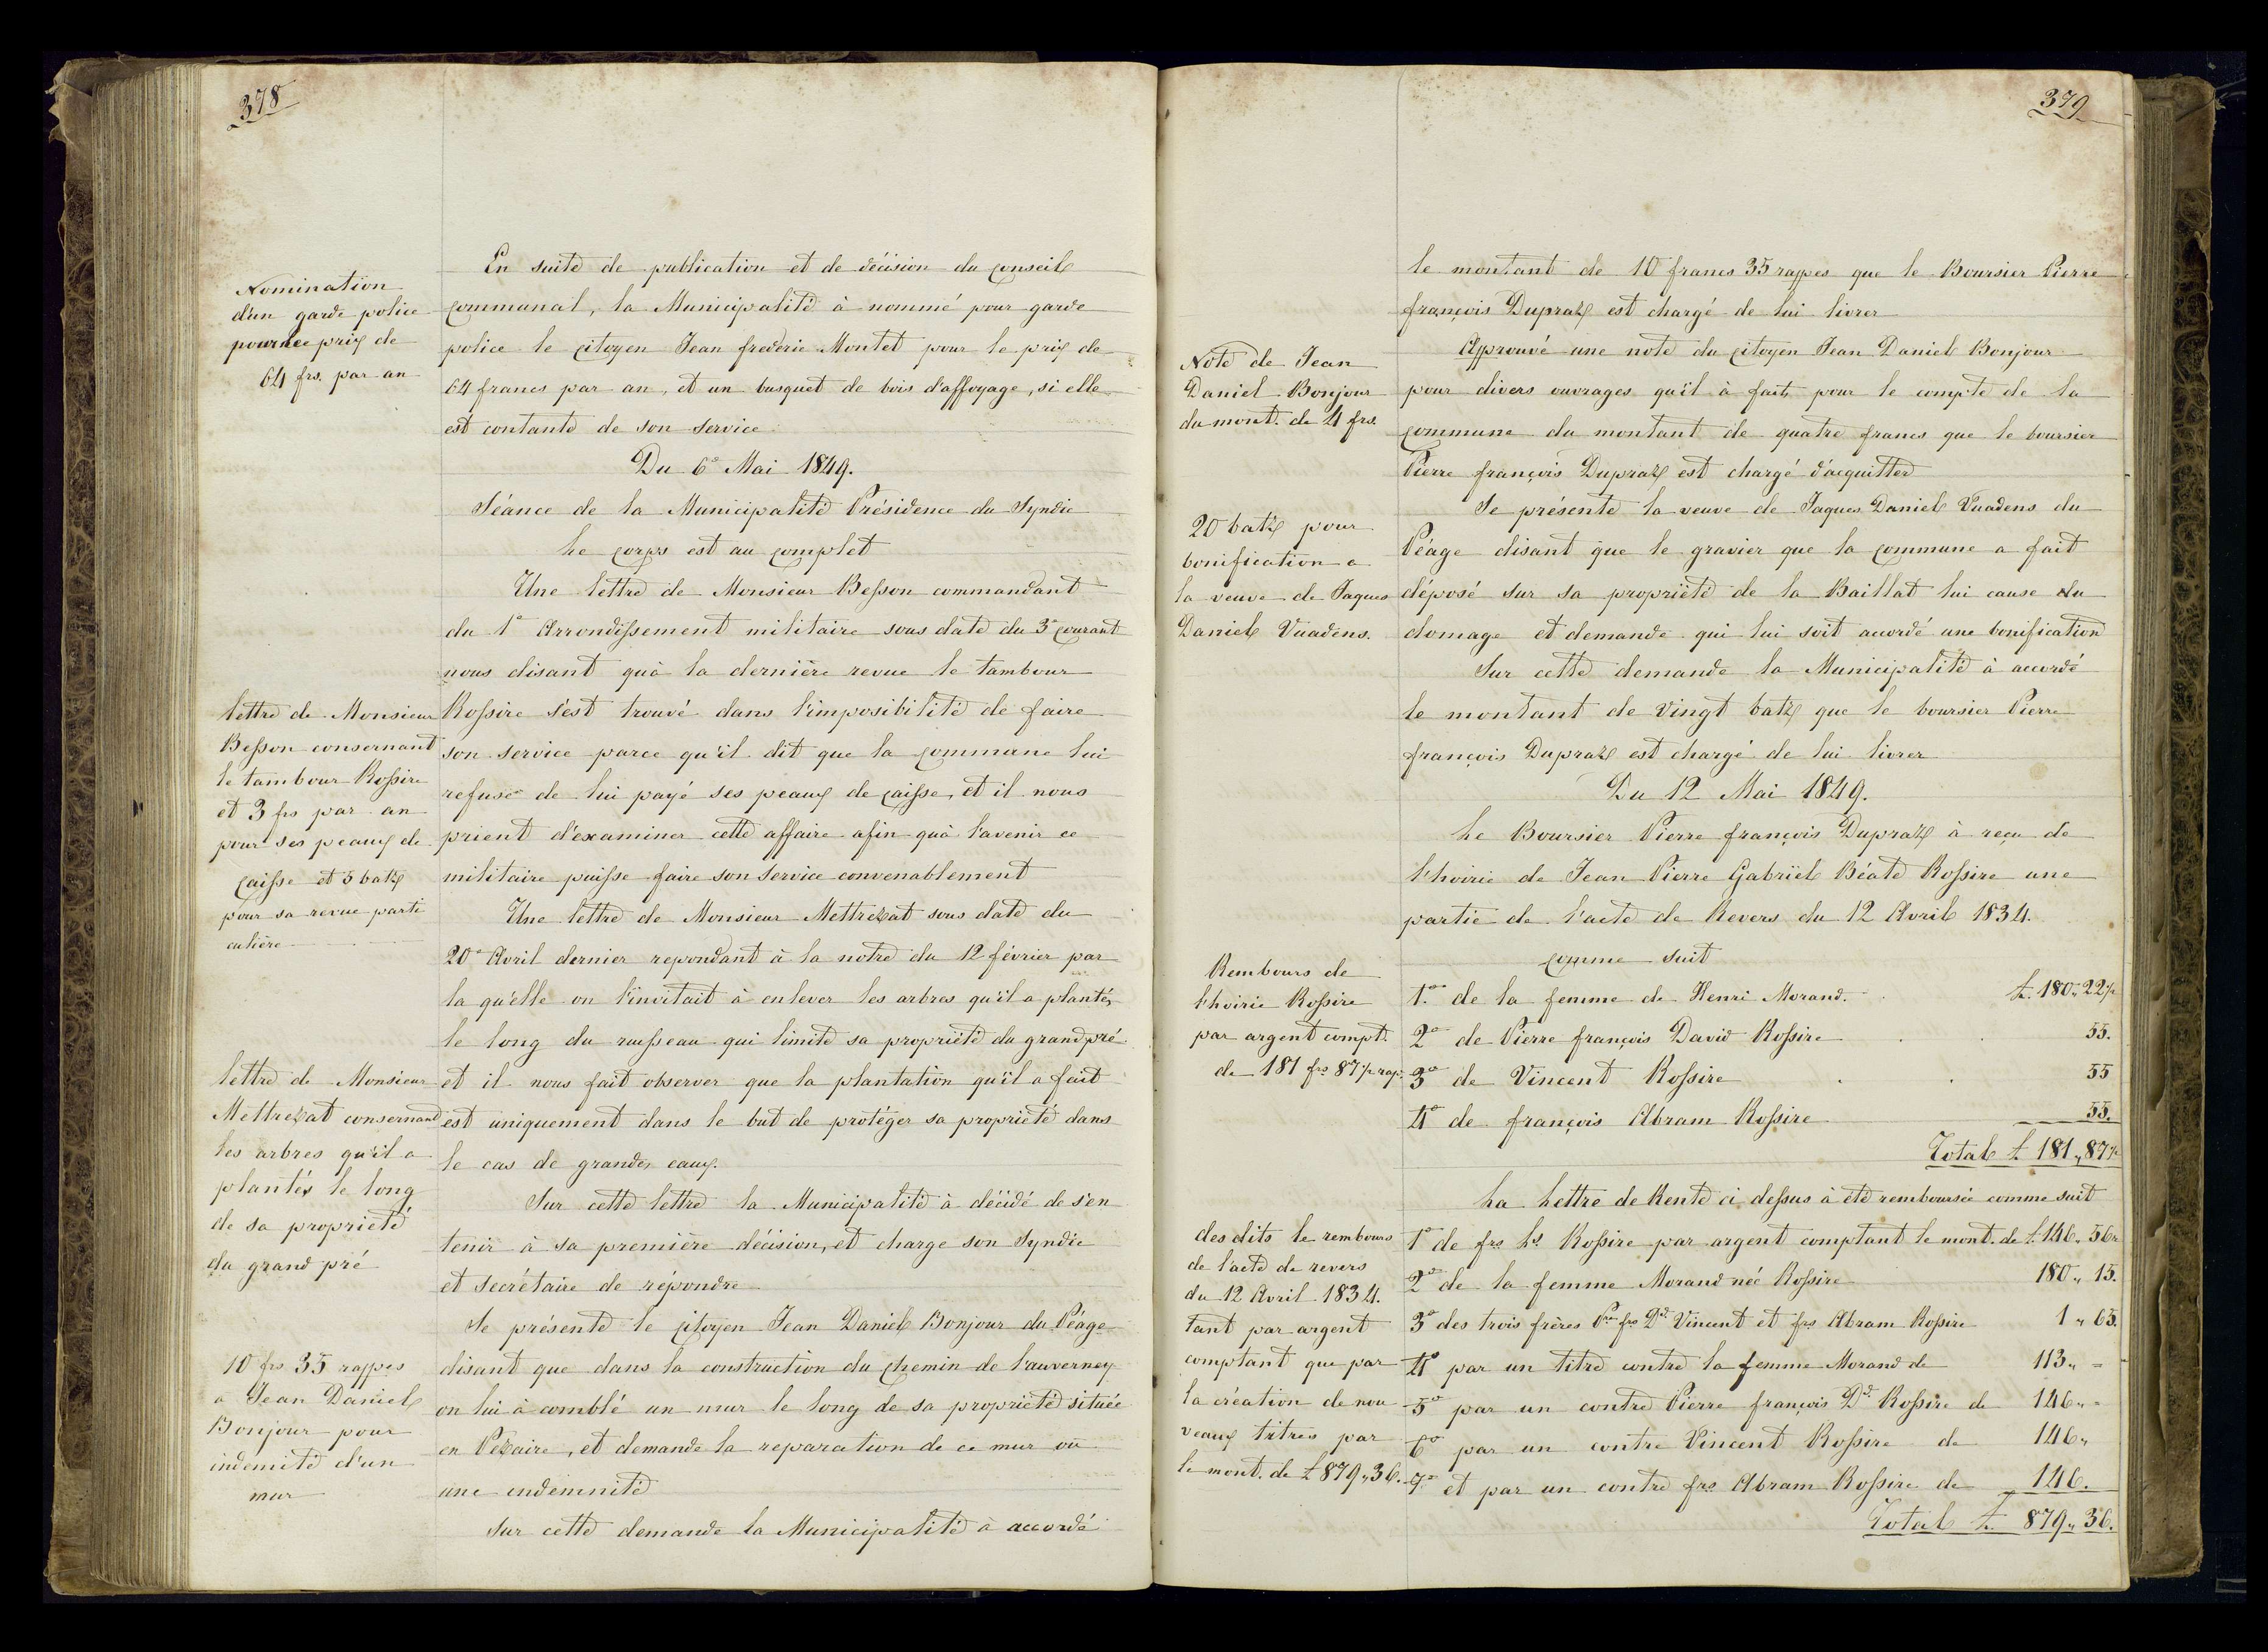 378
Nomination
d'un garde police
pour le prix de
64 frs. par an
En suite de publication et de décision du conseil
communal, la Municipalité à nommé pour garde
police le citoyen Jean frederic Montet pour le prix de
64 francs par an, et un busquet de bois d'affoyage, si elle
est contante de son service
Du 6e Mai 1849.
Séance de la Municipalité Présidence du Syndic
Le corps est au complet
Une lettre de Monsieur Besson commandant
du 1e Arrondissement militaire sous date du 3e courant
nous disant qu'à la dernière revue le tambour
Rossire s'est trouvé dans l'imposibilité de faire
son service parce qu'il dit que la commune lui
refuse de lui payé ses peaux de caisse, et il nous
prient d'examiner cette affaire afin qu'à l'avenir ce
militaire puisse faire son service convenablement
lettre de Monsieur
Besson consernant
le tambour Rossire
et 3 frs par an
pour ses peaux de
caisse et 5 batz
pour sa revue parti
culière
Une lettre de Monsieur Mettrezat sous date du
20e Avril dernier repondant à la notre du 12 février par
la qu'elle on l'invitait à enlever les arbres qu'il a plantés
le long du ruisseau qui limite sa propriété du grand pré
et il nous fait observer que la plantation qu'il a fait
est uniquement dans le but de protéger sa propriété dans
le cas de grandes eaux.
Sur cette lettre la Municipalité à décidé de s'en
tenir à sa première décision, et charge son Syndic
et secrétaire de répondre
lettre de Monsieur
Mettrezat consernand
les arbres qu'il a
plantés le long
de sa propriété
du grand pré
Se présente le citoyen Jean Daniel Bonjour du Péage
disant que dans la construction du chemin de l'auverney
on lui à comblé un mur le long de sa propriété située
en Pezaire, et demande la reparation de ce mur ou
une indemnité
Sur cette demande la Municipalité à accordé
10 frs 35 rappes
a Jean Daniel
Bonjour pour
indemité d'un
mur
379
le montant de 10 francs 35 rappes que le Boursier Pierre
françois Dupraz est chargé de lui livrer
Note de Jean
Daniel Bonjour
du mont. de 4 frs.
Approuvé une note du citoyen Jean Daniel Bonjour
pour divers ouvrages qu'il à faits pour le compte de la
commune du montant de quatre francs que le boursier
Pierre françois Dupraz est chargé d'acquitter
20 batz pour
bonification a
la veuve de Jaques
Daniel Vuadens.
Se présente la veuve de Jaques Daniel Vuadens du
Péage disant que le gravier que la commune a fait
déposé sur sa propriété de la Baillat lui cause du
domage et demande qui lui soit accordé une bonification
Sur cette demande la Municipalité à accordé
le montant de vingt batz que le boursier Pierre
françois Dupraz est chargé de lui livrer
Du 12 Mai 1849.
Le Boursier Pierre françois Dupraz à reçu de
l'hoirie de Jean Pierre Gabriel Béate Rossire une
partie de l'acte de Revers du 12 Avril 1834.
comme suit
Rembours de
l'hoirie Rossire
par argent compt.
de 181 frs 87 1/2 rap.
1o de la femme de Henri Morand. L. 180 " 22 1/2
2o de Pierre françois David Rossire 55.
3o de Vincent Rossire 55
4o de françois Abram Rossire 55.
Total L. 181 " 87 1/2
La Lettre de Rente ci dessus à été remboursée comme suit
des dits le rembours
de l'acte de revers
du 12 Avril 1834.
tant par argent
comptant que par
la création de nou
veaux titres par
le mont. de L. 879 " 36.
1o de frs Ls Rossire par argent comptant le mont. de L. 146 " 56
2o de la femme Morand née Rossire 180 " 15.
3o des trois frères Pre frs Dd Vincent et frs Abram Rossire 1 " 65.
4o par un titre contre la femme Morand de 113 " =
5o par un contre Pierre françois Dd Rossire de 146 " =
6o par un contre Vincent Rossire de 146 "
7o et par un contre frs Abram Rossire de 146.
Total L. 879 " 36.